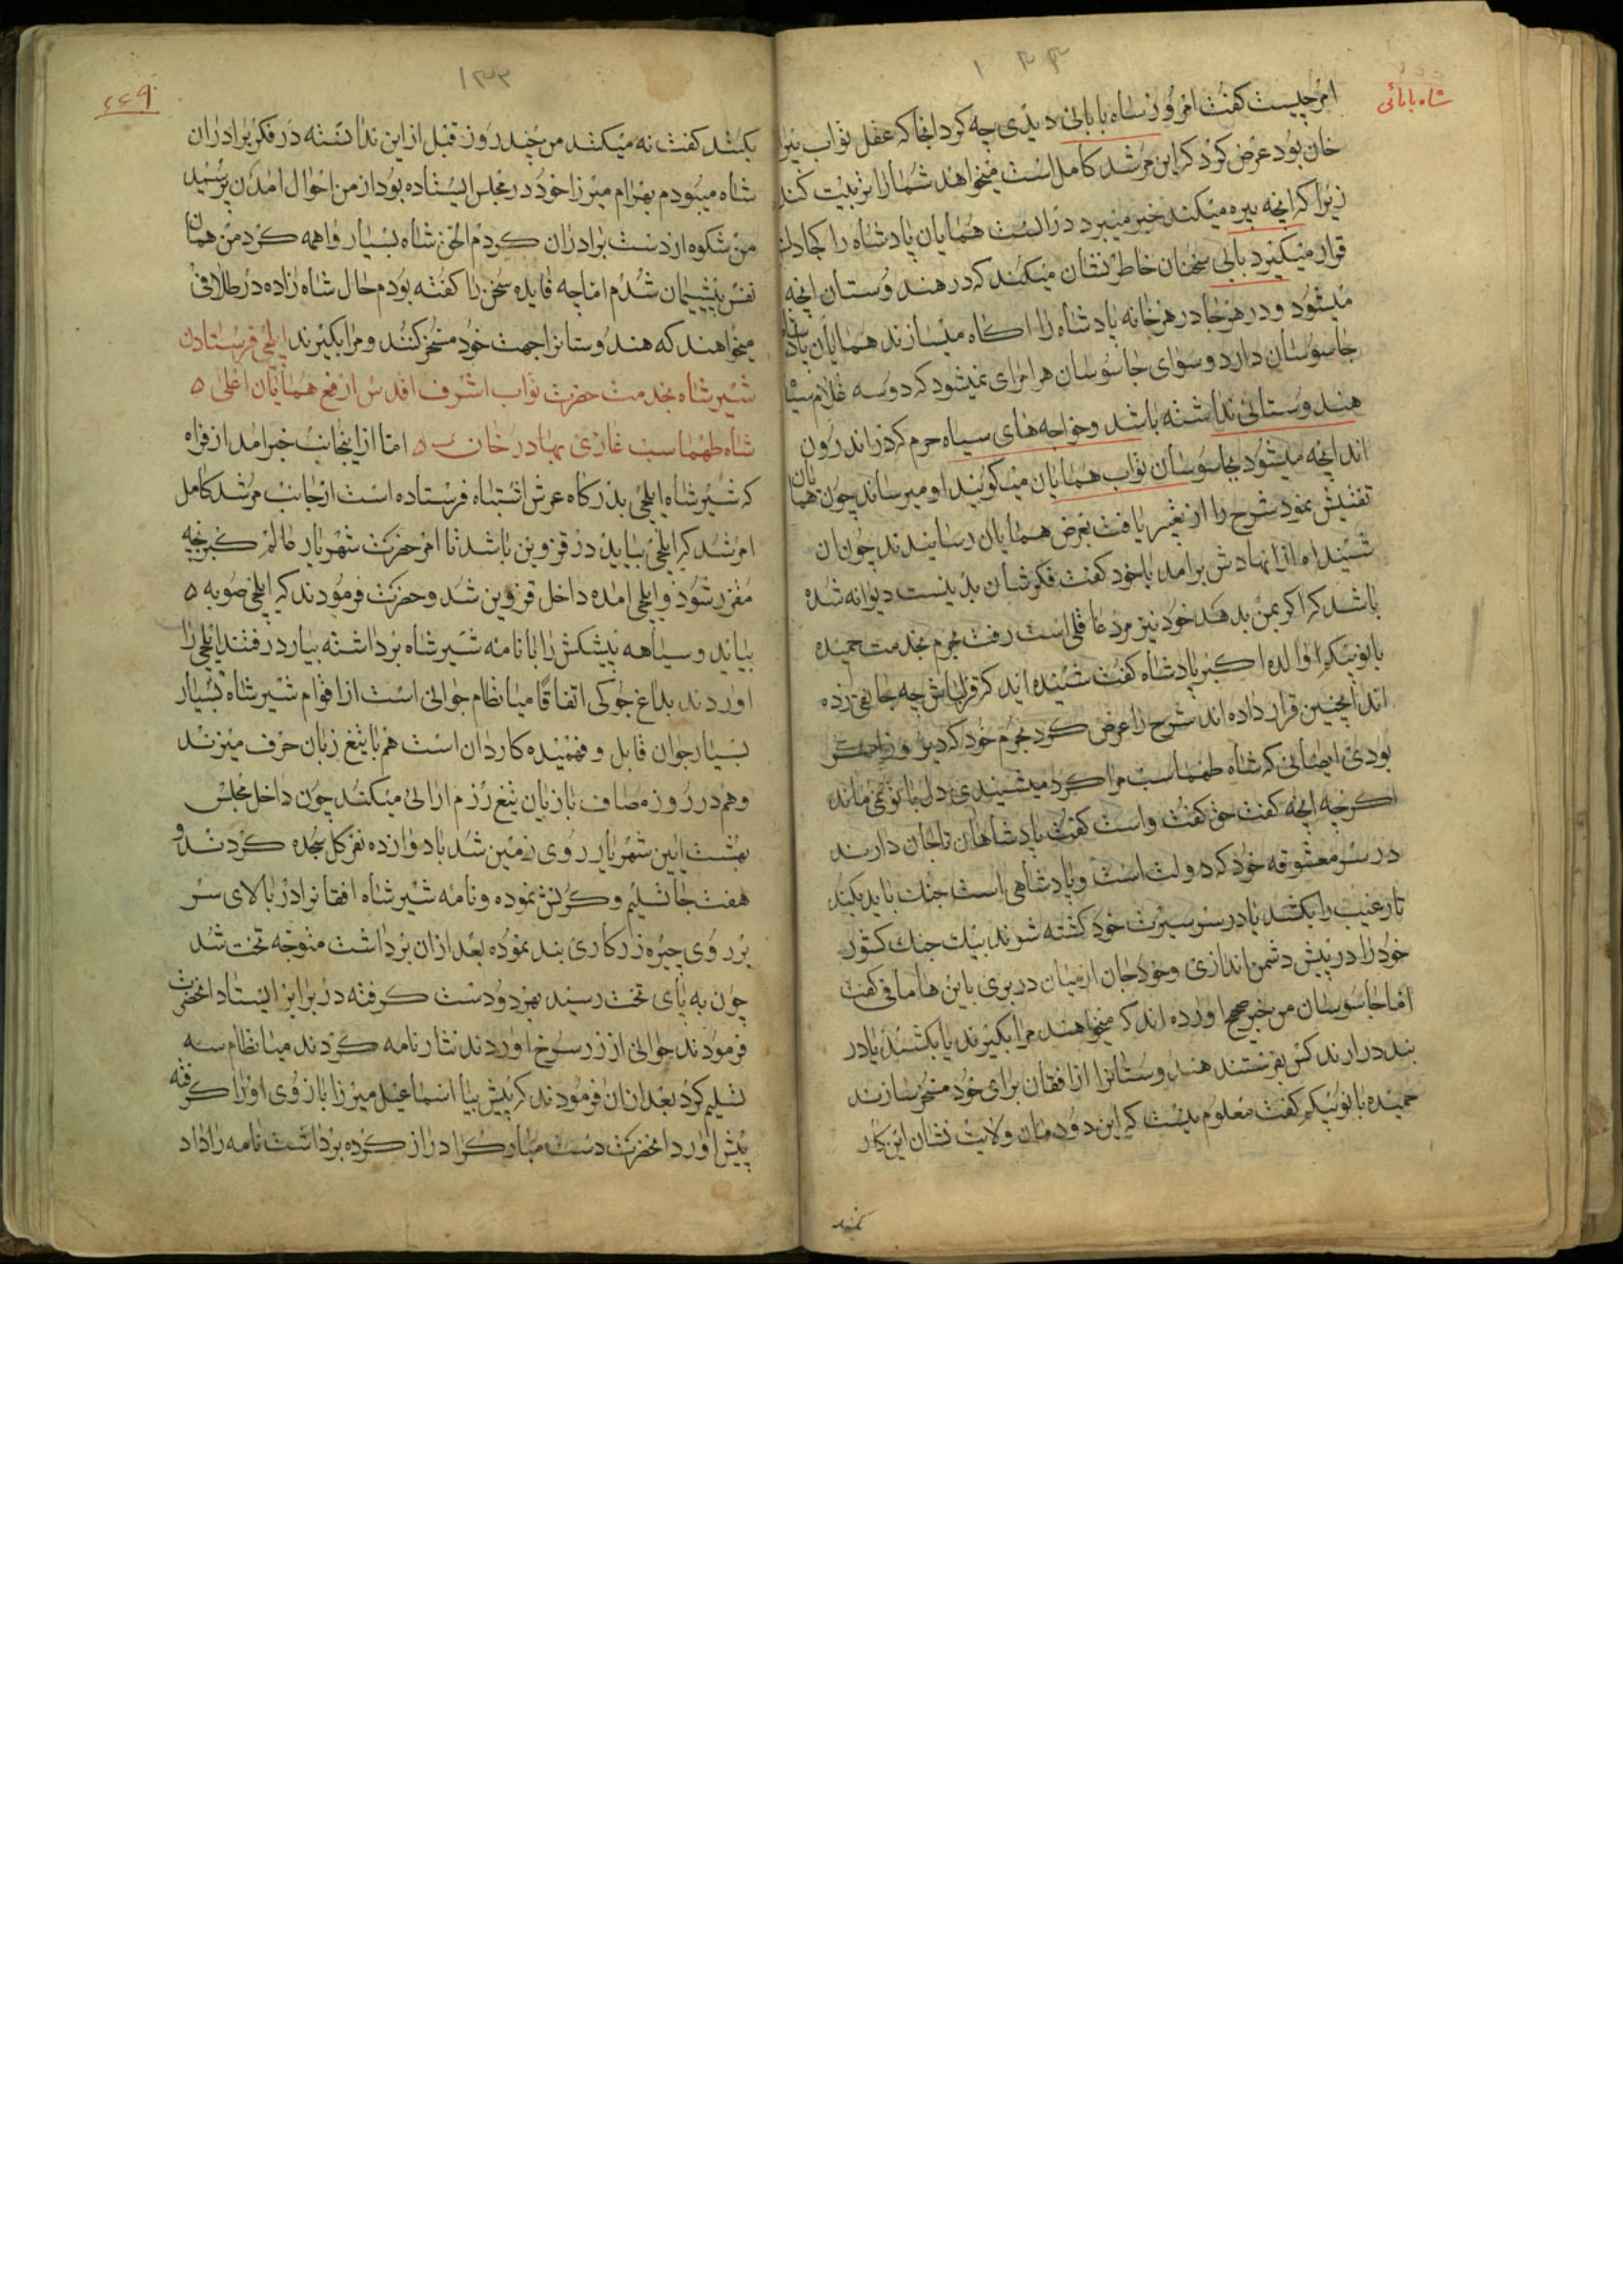 شاه بابائی
امر چیست کفت امروز شاه بابائی دیدی چه کرد انجا که عقل نواب بیرا
خان بود عرض کرد که این مرشد کامل است میخواهد شما را تربیت کند
زیرا که انچه بیره میکند خبر میبرد در الست همایان پادشاه را کجا دل
قرار میکیرد بابی سخنان خاطر نشان میکند که در هندوستان انچه
میشود و در هر جا در هر خانه پادشاه را اکاه میسازند همایان پادشاه
جاسوسان دارد و سوای جاسوسان هر امرای نمیشود که دو سه غلام سیاه
هندوستانی نداشته باشد و خواجه های سیاه حرم که در اندرون
اند انچه میشود بجاسوسان نواب همایان میکویند او میرساند چون همایان
تفتیش نمود شرح را از بغیر یافت بعرض همایان رسانیدند چون ان
شنید اه از نهادش برامد با خود کفت فکر شان بد نیست دیوانه شده
باشد که اکر بمن بدهد خود نیز مرد عاقلی است رفت بحرم بخدمت حمیده
بانو بیکم والده اکبر پادشاه کفت شنیده اند که قزلباش چه جا بقی زده
اند انچنین قرار داده اند شرح را عرض کرد بحرم خود که دیروز
بودی ایضائی که شاه طهماسب مرا کرد میشنیدی دل با تو نمی ماند
اکرچه انچه کفت حق کفت و راست کفت پادشاهان تا جان دارند
در سر معشوقه خود که دولت است و پادشاهی است جنک باید بکند
تا رغیب را بکشد یا در سر سیرت خود کشته شوند بیک جنک کشور
خود را در پیش دشمن اندازی و خود جان از میان در بری باین ها ماقی کفت
اما جاسوسان من خبر صحیح اورده اند که میخواهند مرا بکیرند یا بکشند یا در
بند درارند کس بفرستند هندوستانرا از افقان برای خود مسخر سازند
حمیده بانو بیکم کفت معلوم نیست که این دودمان ولایت نشان این کار
نمیکند
۱۳۳
٤٤٩
بکنند کفت نه میکنند من چند روز قبل از این ندانسته در فکر برادران
شاه میبودم بهرام میرزا خود در مجلس ایستاده بود از من احوال امدن پرسید
من شکوه از دست برادران کردم الحق شاه بسیار واهمه کرد من همان
نفس پشیمان شدم اما چه فایده سخن را کفته بودم حال شاه زاده در طلافی
میخواهند که هندوستانرا جهت خود مسخر کنند و مرا بکیرند ایلچی فرستادن
شیر شاه بخدمت حضرت نواب اشرف اقدس ارفع همایان اعلی ۵
شاه طهماسب غازی بهادر خان ۵ اما از اینجانب خبر امد از فراه
که شیر شاه ایلچی بدرکاه عرش اشتباه فرستاده است از جانب مرشد کامل
امر شد که ایلچی بیاید در قزوین باشد تا امر حضرت شهریار عالم کبر بچه
مقرر شود و ایلچی امده داخل قزوین شد و حضرت فرمودند که ایلچی صوبه ۵
بیاید و سیاهه پیشکش را با نامه شیر شاه برداشته بیارد رفتند ایلچی را
اوردند بداغ جوکی اتفاقا میا نظام جوانی است از اقوام شیر شاه بسیار
بسیار جوان قابل و فهمیده کاردان است هم با تیغ زبان حرف میزند
و هم در روز مصاف با زبان تیغ رزم ارائی میکند چون داخل مجلس
بهشت ایین شهریار روی زمین شد با دوازده نفر کل سجده کردند و
هفت جا تسلیم و کرنش نموده و نامه شیر شاه افقانرا در بالای سر
بر روی چیره زرکاری بند نموده بعد ازان برداشت متوجه تخت شد
چون به پای تخت رسید بهر دو دست کرفته در برابر ایستاد انحضرت
فرمودند جوالی از زر سرخ اوردند نثار نامه کردند میا نظام سه
تسلیم کرد بعد ازان فرمودند که پیش بیا اسماعیل میرزا بازوی او را کرفته
پیش اورد انحضرت دست مبارک را دراز کرده برداشت نامه را داد